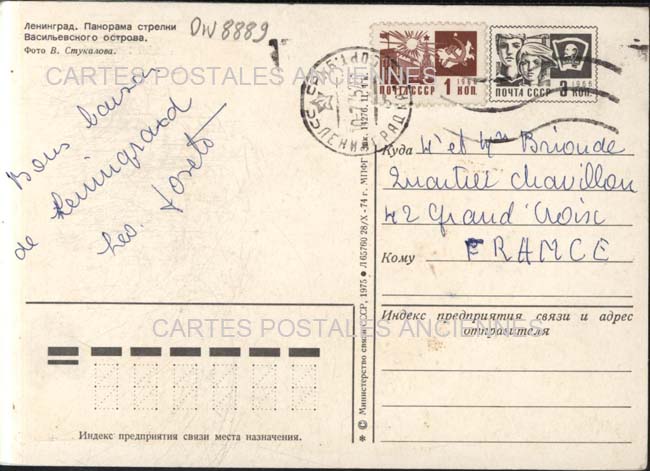 Ленинград. Панорама стрелки
Васильевского острова.
Фото В. Стукалова.
DW 8889
CARTES POSTALES ANCIENNES
Bons baisers
de Leningrad
les
1966
ПОЧТА СССР 1 КОП.
1966
ПОЧТА СССР 3 КОП.
СССР ЛЕНИНГРАД
Куда Mr et Mme Brionde
Quartier Chavillon
42 Grand'Croix
Кому FRANCE
Индекс предприятия связи и адрес
отправителя
CARTES POSTALES ANCIENNES
Индекс предприятия связи места назначения.
* © Министерство связи СССР, 1975 * Л 65760 28/X - 74 г. МПФГ Зак. 14276.